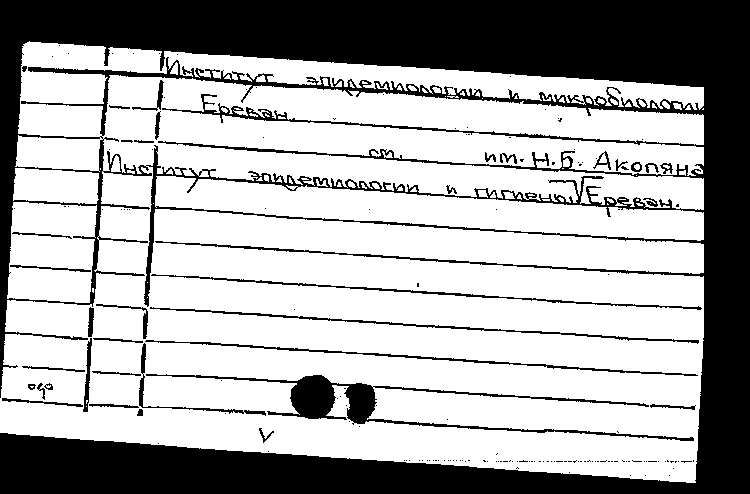 Институт эпидемиологии и микробиологии
Ереван.
см.
им. Н.Б. Акопяна
Институт эпидемиологии и гигиены √ Ереван.
V